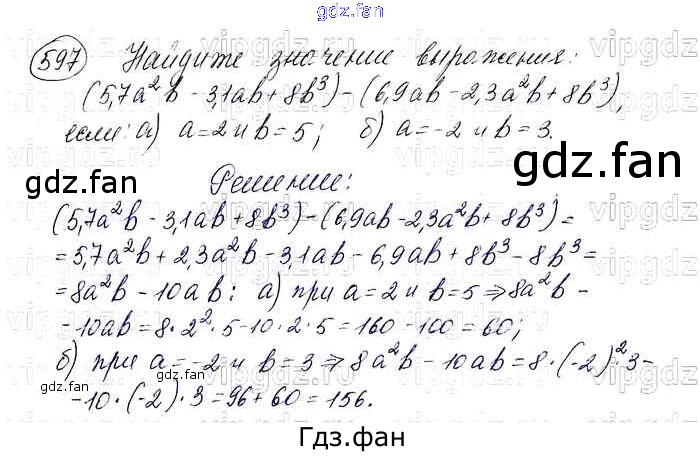 gdz.fan
597 Найдите значение выражения:
(5,7a²b - 3,1ab + 8b³) - (6,9ab - 2,3a²b + 8b³),
если: а) a = 2 и b = 5; б) a = -2 и b = 3.
gdz.fan
gdz.fan
Решение:
(5,7a²b - 3,1ab + 8b³) - (6,9ab - 2,3a²b + 8b³) =
= 5,7a²b + 2,3a²b - 3,1ab - 6,9ab + 8b³ - 8b³ =
= 8a²b - 10ab; а) при a = 2 и b = 5 ⇒ 8a²b -
- 10ab = 8 · 2² · 5 - 10 · 2 · 5 = 160 - 100 = 60;
б) при a = -2 и b = 3 ⇒ 8a²b - 10ab = 8 · (-2)² · 3 -
- 10 · (-2) · 3 = 96 + 60 = 156.
gdz.fan
gdz.fan
Гдз.фан